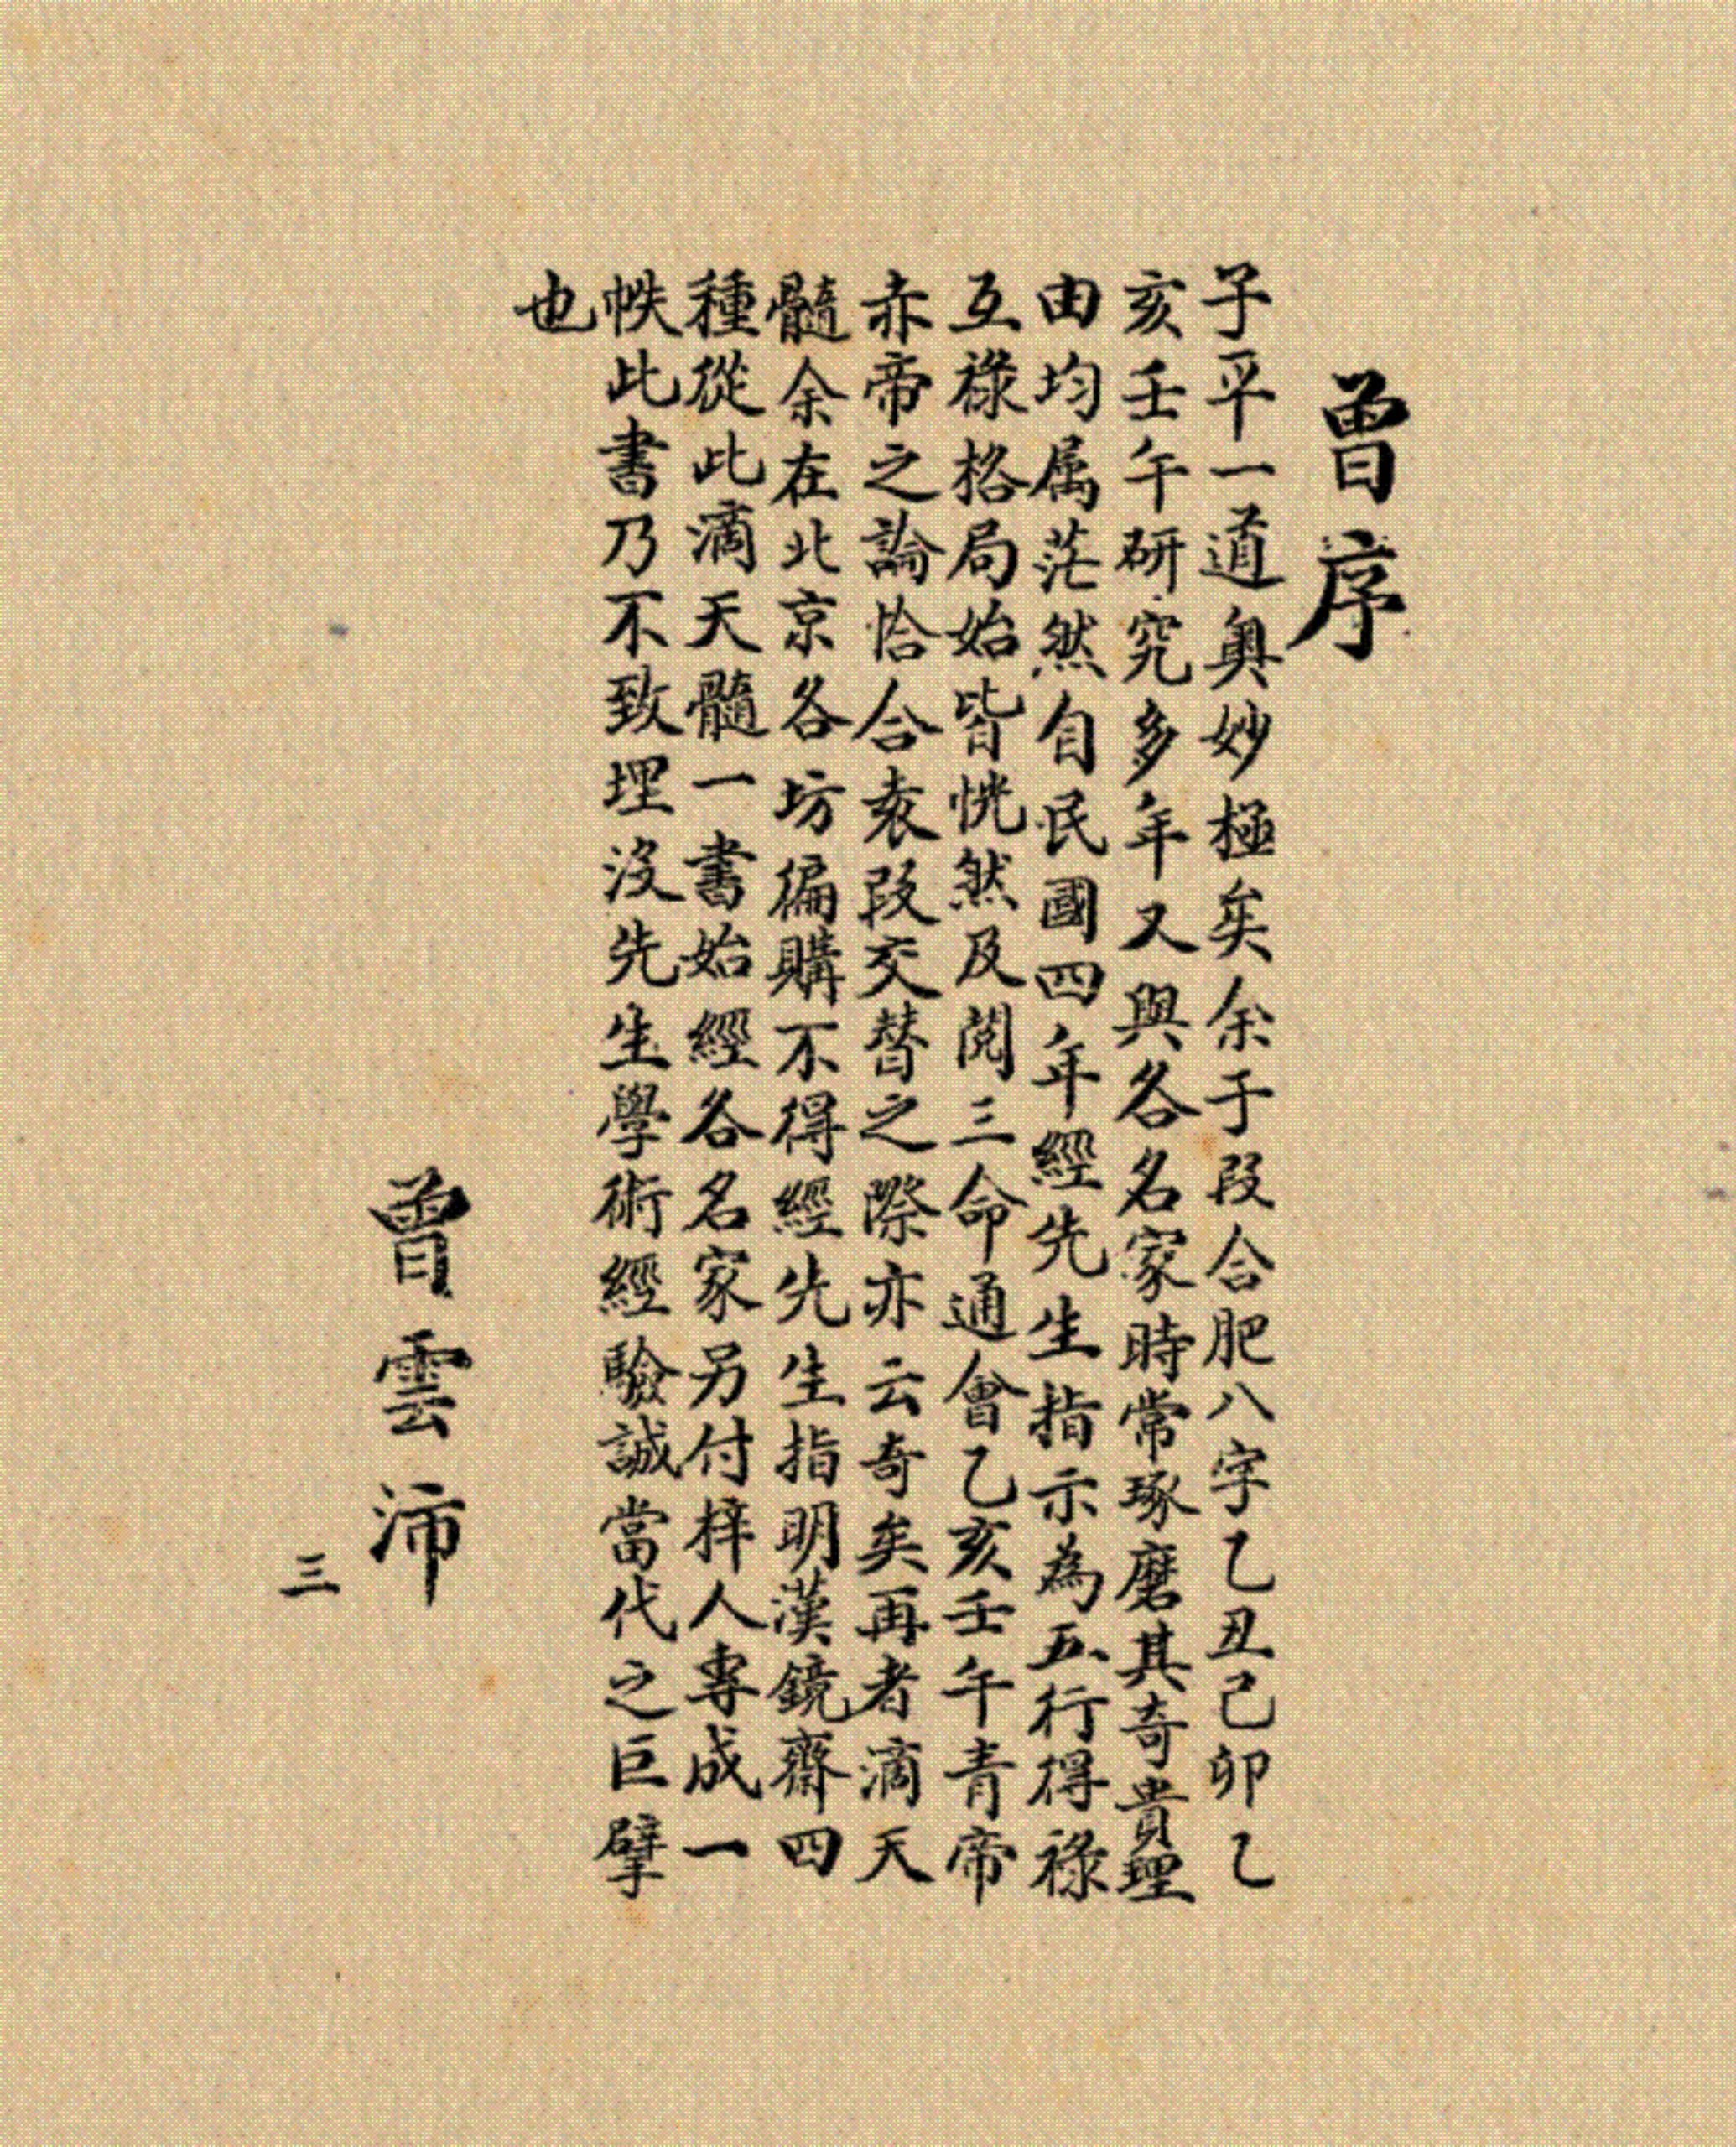 曾序
子平一道奧妙極矣余于段合肥八字乙丑己卯乙
亥壬午研究多年又與各名家時常琢磨其奇貴理
由均属茫然自民國四年經先生指示為五行得祿
互祿格局始皆恍然及閱三命通會乙亥壬午青帝
赤帝之論恰合袁段交替之際亦云奇矣再者滴天
髓余在北京各坊徧購不得經先生指明漢鏡齋四
種從此滴天髓一書始經各名家另付梓人專成一
帙此書乃不致埋沒先生學術經驗誠當代之巨擘
也
曾雲沛
三